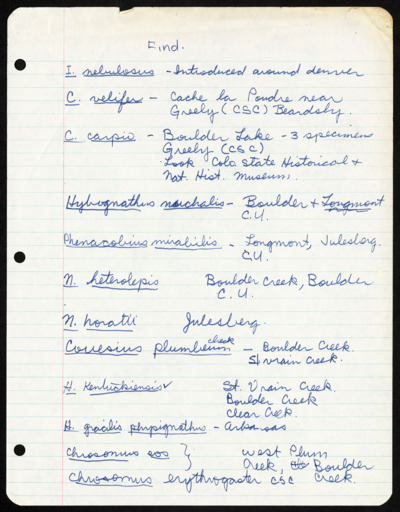 Find.
I. nebulosus - Introduced around denver
C. velifer - Cache la Poudre near
Greely (CSC) Beardsley.
C. carpio - Boulder Lake - 3 specimens
Greely (CSC)
Look Colo. State Historical +
Nat. Hist. Museum.
Hybognathus nuchalis - Boulder + Longmont
C.U.
Phenacobius mirabilis - Longmont, Julesburg.
C.U.
N. heterolepis Boulder Creek, Boulder
C. U.
N. horatii Julesberg.
check
Couesius plumbeus - Boulder Creek.
St vrain Creek.
H. Kentuckiensis ✓ St. Vrain Creek.
Boulder Creek
Clear Creek.
H. gracilis physignathus - Arkansas
Chrosomus eos } West Plum
Creek, Boulder
Chrosomus erythrogaster CSC Creek.